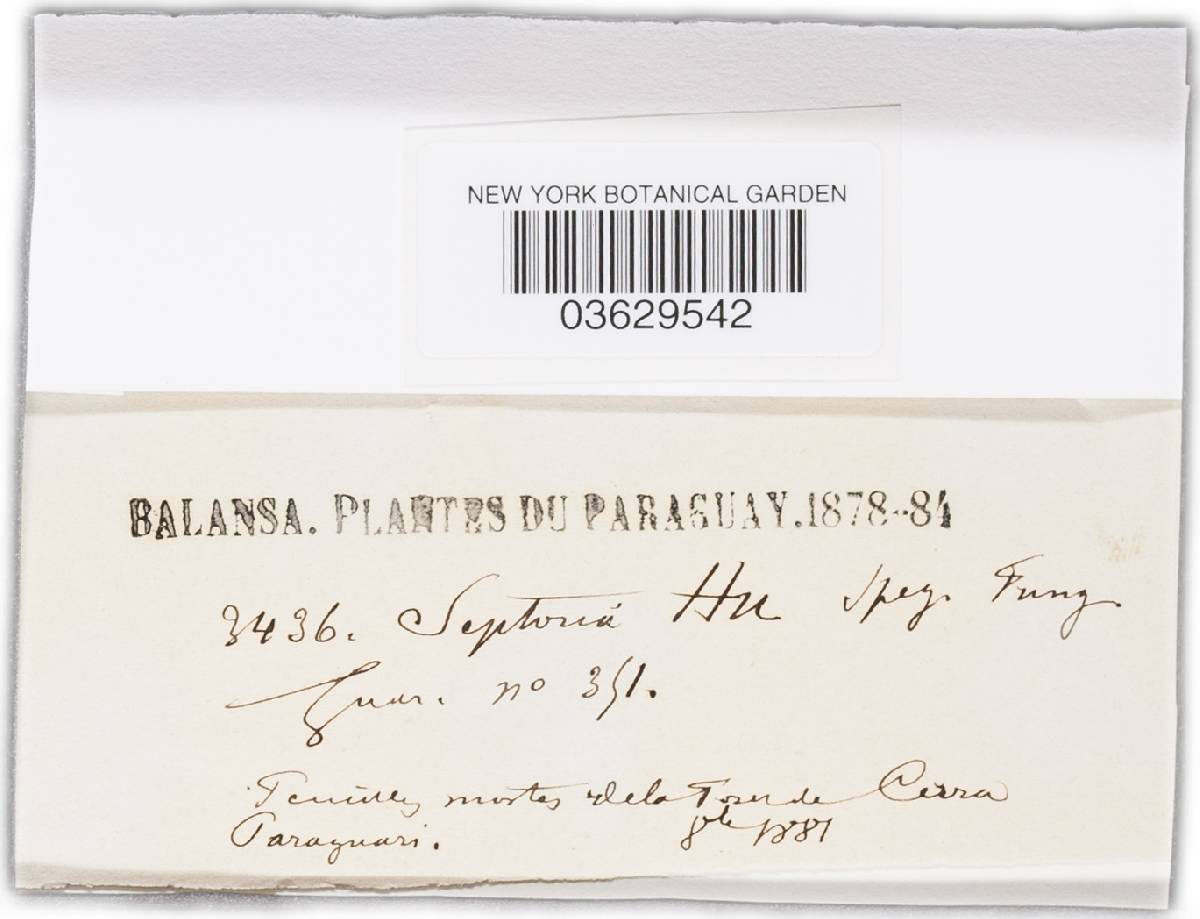 NEW YORK BOTANICAL GARDEN
03629542
BALANSA. PLANTES DU PARAGUAY. 1878--84
3436. Septoria Hu Speg. Fung.
Guar. no 351.
mortes de la de Cerra
Paraguari. 8bre 1881